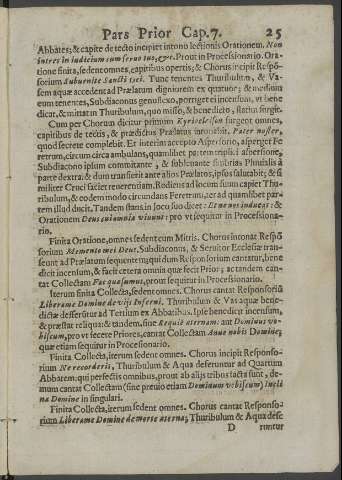 Pars Prior Cap. 7. 25
Abbates; & capite detecto incipiet intono lectionis Orationem. Non
intres in iudicium cum seruo tuo, &c. Prout in Processionario. Ora-
tione finita, sedent omnes, capitibus opertis; & Chorus incipit Respõ-
sorium Subuenite Sancti Dei. Tunc tenentes Thuribulum, & Va-
sem aquæ accedent ad Prælatum digniorem ex quatuor; & medium
eum tenentes, Subdiaconus genuflexo, porriget ei incensum, vt bene
dicat, & mittat in Thuribulum, quo misso, & benedicto, statim surgit.
Cum per Chorum dicitur primum Kyrieeleison surgent omnes,
capitibus detectis, & prædictus Prælatus intonabit, Pater noster,
quod secrete complebit. Et interim accepto Aspersorio, asperget Fe
retrum, circum circa ambulans, quamlibet partem triplici aspersione,
Subdiacono ipsum commitante, & subleuante fimbrias Pluuialis à
parte dextra: & dum transierit ante alios Prælatos, ipsos salutabit; & si
militer Cruci faciet reuerentiam. Rediens ad locum suum capiet Thu-
ribulum, & eodem modo circundans Feretrum, ter ad quamlibet par-
tem illud ducit, Tandem stans in loco suo dicet: Et ne nos inducas: &
Orationem Deus cui omnia viuunt: pro vt sequitur in Processiona-
rio.
Finita Oratione, omnes sedent cum Mitris. Chorus intonat Respõ
sorium Memento mei Deus. Subdiaconus, & Seruitor Ecclesiæ tran-
seunt ad Prælatum sequentem; qui dum Responsorium cantatur, bene
dicit incensum, & facit cetera omnia quæ fecit Prior; ac tandem can-
tat Collectam Fac quæsumus, prout sequitur in Processionario.
Iterum finita Collecta, sedent omnes. Chorus cantat Responsoriũ
Liberame Domine de vijs Inferni. Thuribulum & Vas aquæ bene-
dictæ defferuntur ad Tertium ex Abbatibus. Ipse benedicit incensum,
& præstat reliqua: & tandem, siue Requiẽ æternam: aut Dominus vo-
biscum, pro vt fecere Priores, cantat Collectam Annue nobis Domine,
quæ etiam sequitur in Processionario.
Finita Collecta, iterum sedent omnes. Chorus incipit Responso-
rium Ne recorderis, Thuribulum & Aqua deferuntur ad Quartum
Abbatem: qui perfectis omnibus, prout ab alijs tribus facta sunt, de-
mum cantat Collectam (sine preuio etiam Dominum vobiscum) Incli
na Domine in singulari.
Finita Collecta, iterum sedent omnes. Chorus cantat Responso-
rium Liberame Domine de morte æterna; Thuribulum & Aqua defe
D runtur